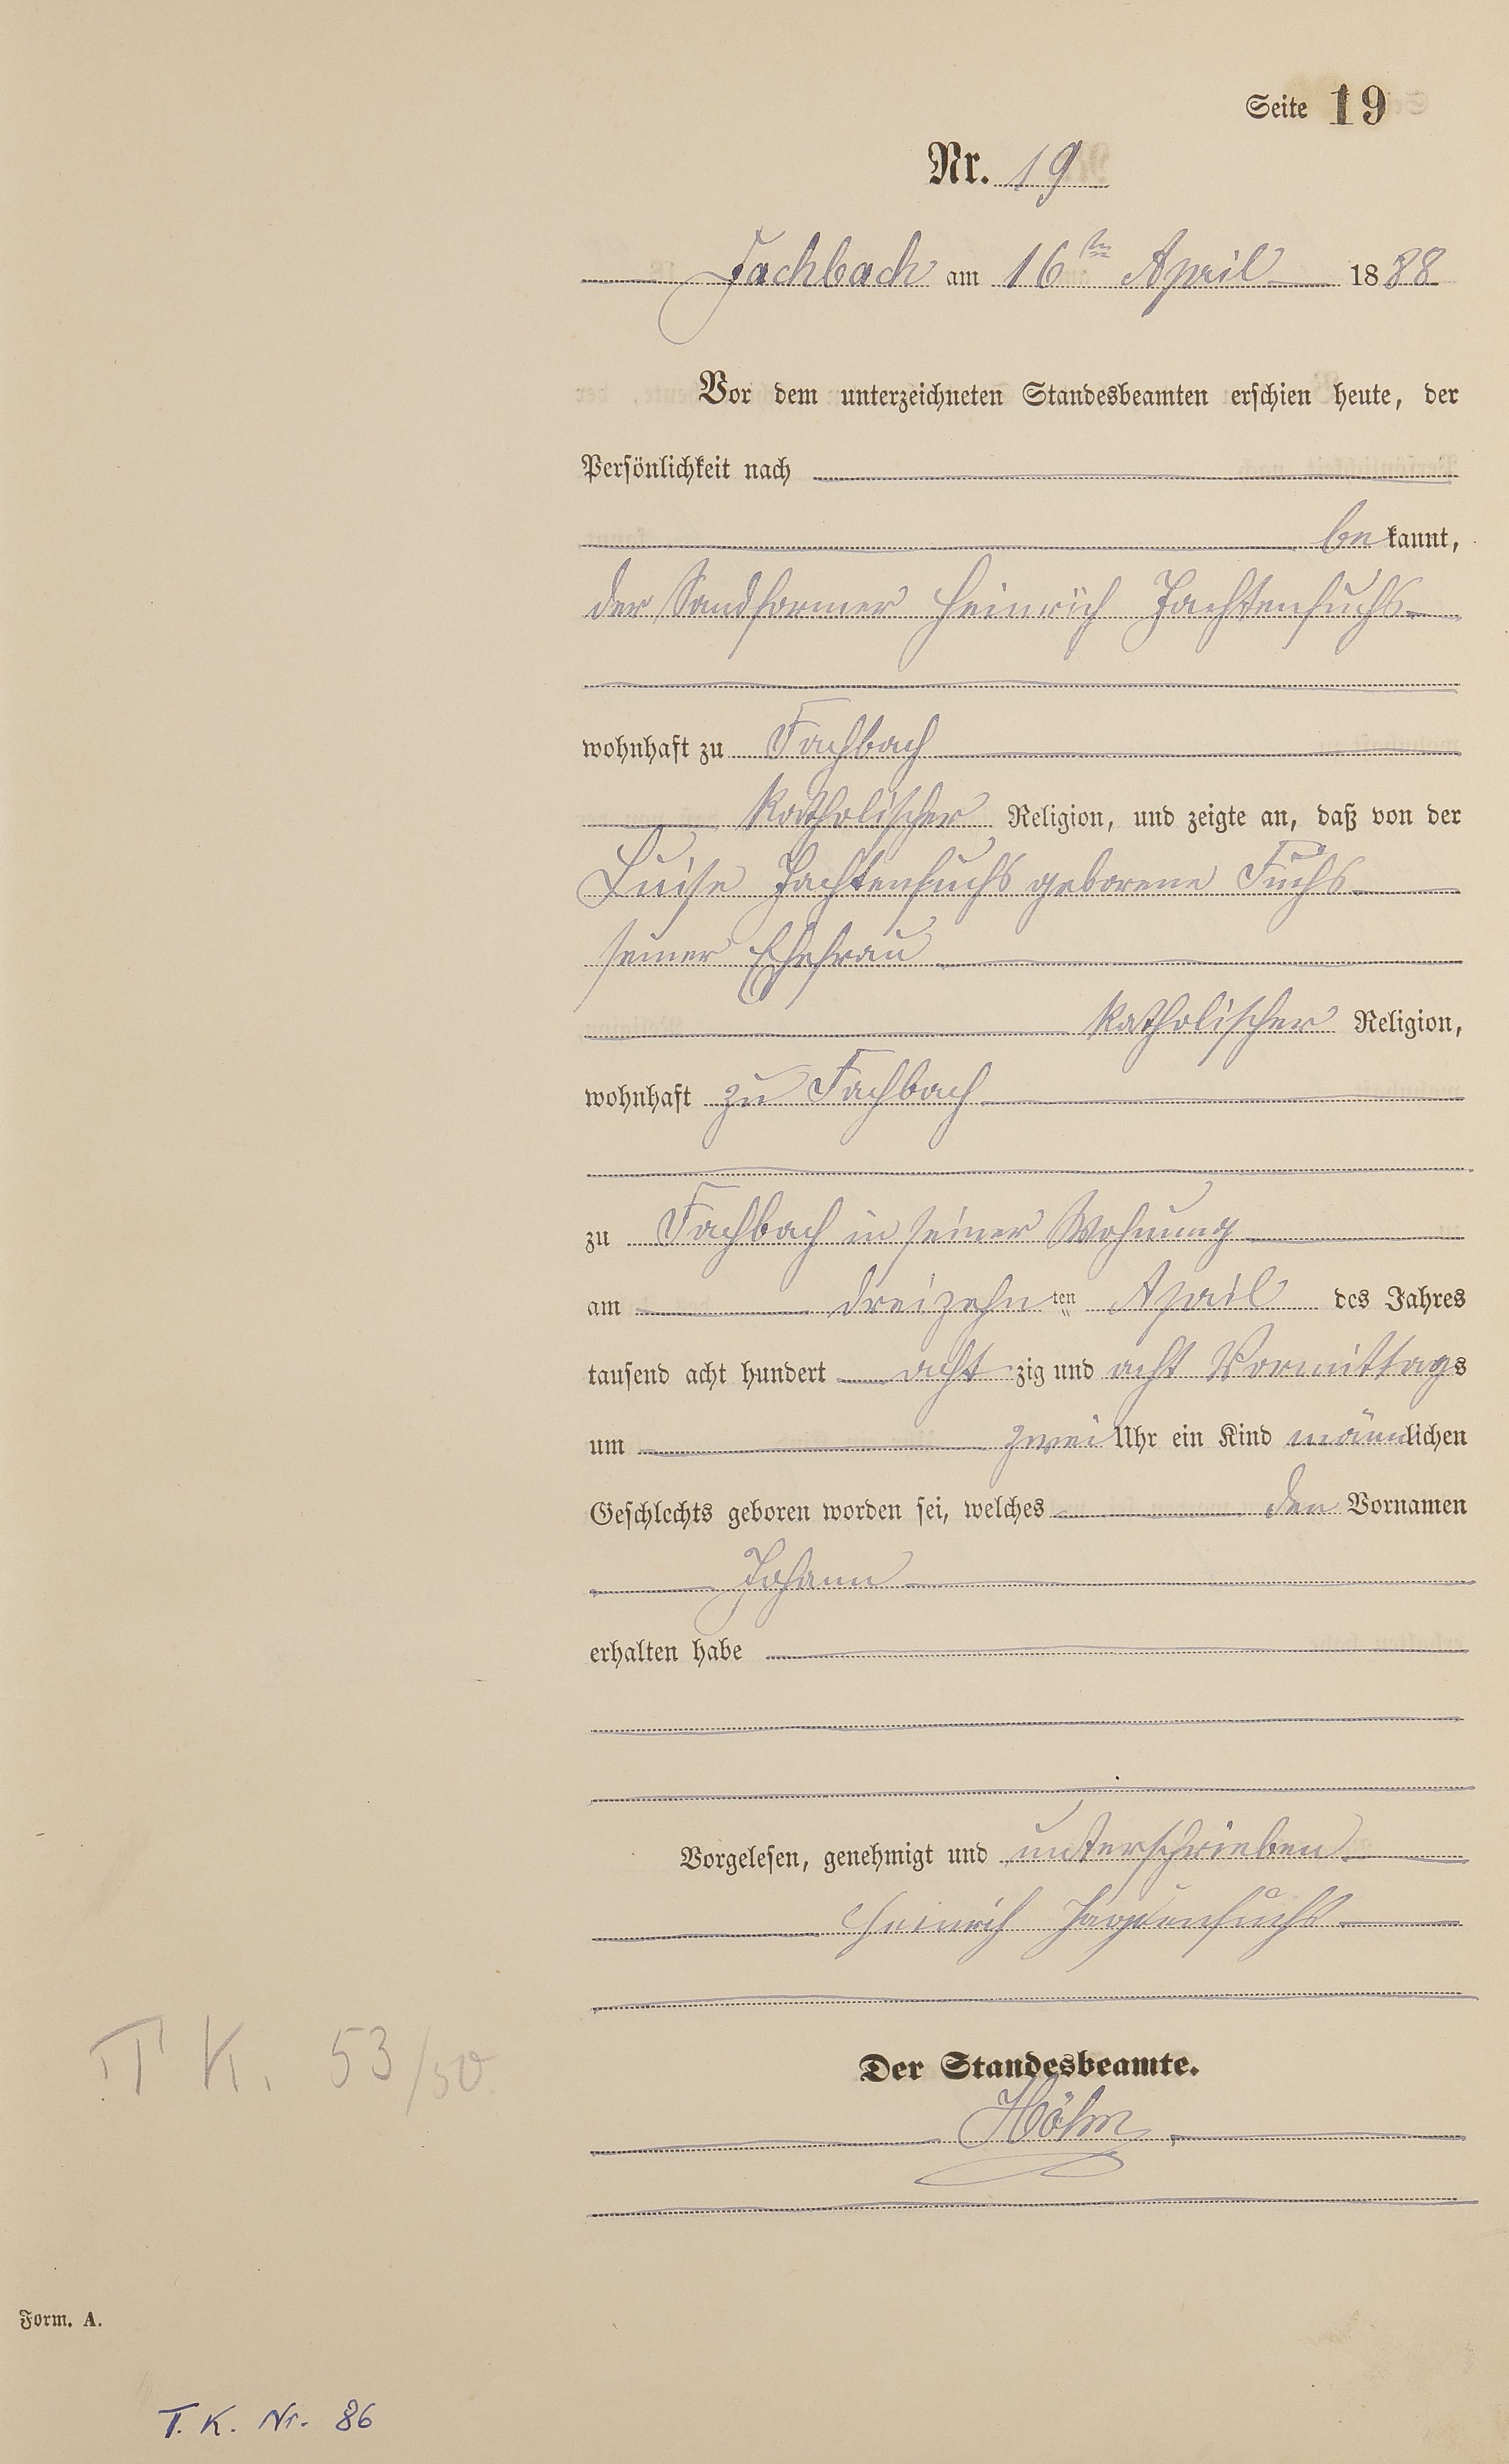 Seite 19
Nr. 19
Fachbach am 16ten April 1888
Vor dem unterzeichneten Standesbeamten erschien heute, der
Persönlichkeit nach
bekannt,
der Sandformer Heinrich Jachtenfuchs
wohnhaft zu Fachbach
katholischer Religion, und zeigte an, daß von der
Luise Jachtenfuchs geborene Fuchs
seiner Ehefrau
katholischer Religion,
wohnhaft zu Fachbach
zu Fachbach in seiner Wohnung
am dreizehnten April des Jahres
tausend acht hundert achtzig und acht Vormittags
um zwei Uhr ein Kind männlichen
Geschlechts geboren worden sei, welches den Vornamen
Johann
erhalten habe
Vorgelesen, genehmigt und unterschrieben
Heinrich Jachtenfuchs
T K. 53/50
Der Standesbeamte.
Höhn
Form. A.
T. K. Nr. 86